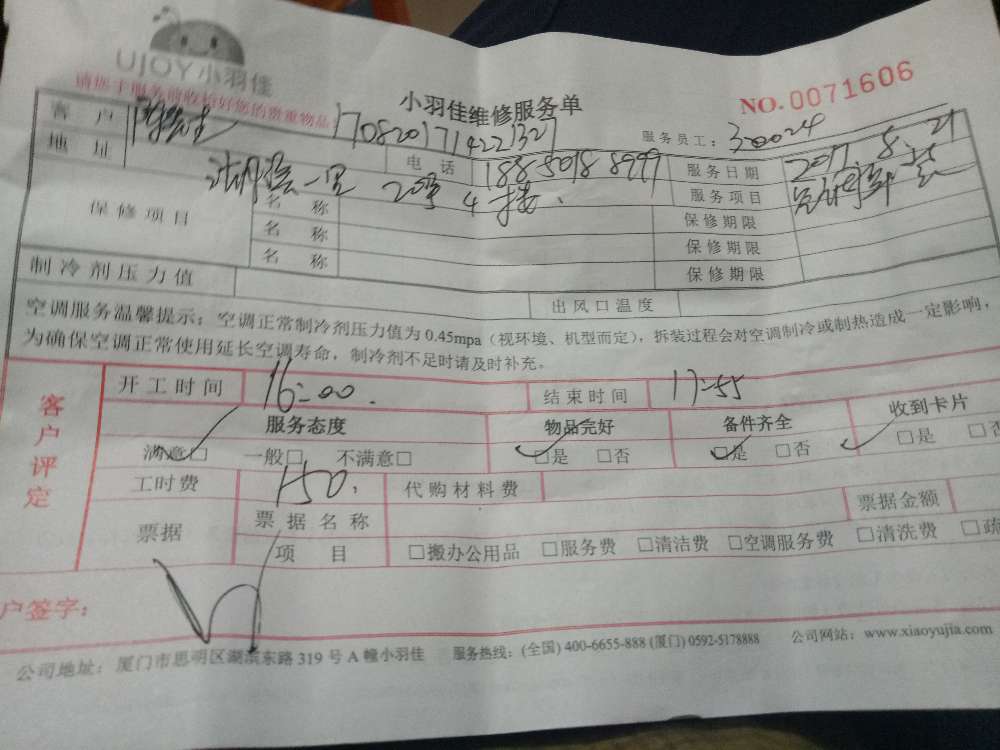 UJOY小羽佳
请您于服务前收拾好您的贵重物品
小羽佳维修服务单
NO.0071606
客户
1708201714221321
服务员工:300024
地址
20号4楼
电话
188 5018 8999
服务日期
2017.8.21
服务项目
保修项目
名称
保修期限
名称
保修期限
名称
保修期限
制冷剂压力值
出风口温度
空调服务温馨提示:空调正常制冷剂压力值为0.45mpa(视环境、机型而定),拆装过程会对空调制冷或制热造成一定影响,
为确保空调正常使用延长空调寿命,制冷剂不足时请及时补充。
客户评定
开工时间 16:00
结束时间 17:55
服务态度 物品完好 备件齐全 收到卡片
满意□ 一般□ 不满意□ □是 □否 □是 □否 □是 □否
工时费 150
代购材料费
票据
票据名称
票据金额
项目 □搬办公用品 □服务费 □清洁费 □空调服务费 □清洗费 □疏
户签字:
公司地址:厦门市思明区湖滨东路319号A幢小羽佳 服务热线:(全国)400-6655-888(厦门)0592-5178888 公司网站:www.xiaoyujia.com